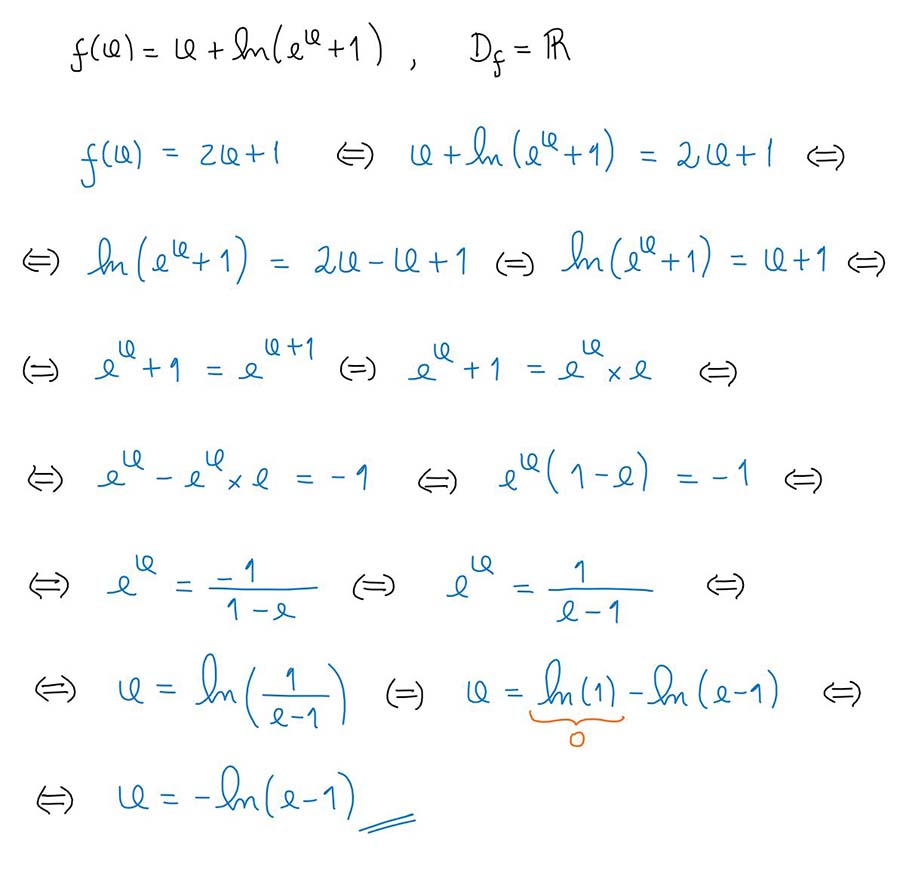 f(x) = x + ln(e^x + 1) , D_f = ℝ
f(x) = 2x + 1 ⇔ x + ln(e^x + 1) = 2x + 1 ⇔
⇔ ln(e^x + 1) = 2x - x + 1 ⇔ ln(e^x + 1) = x + 1 ⇔
⇔ e^x + 1 = e^(x+1) ⇔ e^x + 1 = e^x × e ⇔
⇔ e^x - e^x × e = -1 ⇔ e^x (1 - e) = -1 ⇔
⇔ e^x = -1/(1 - e) ⇔ e^x = 1/(e - 1) ⇔
⇔ x = ln(1/(e - 1)) ⇔ x = ln(1) - ln(e - 1) ⇔
0
⇔ x = -ln(e - 1)